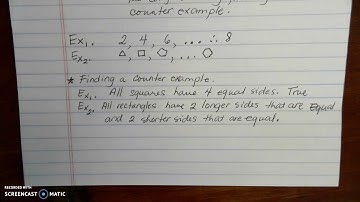 counter example.
Ex1. 2, 4, 6, ... ∴ 8
Ex2. △, □, ⬠, ... ⬡
* Finding a counter example.
Ex1. All squares have 4 equal sides. True
Ex2. All rectangles have 2 longer sides that are equal
and 2 shorter sides that are equal.
RECORDED WITH
SCREENCAST MATIC